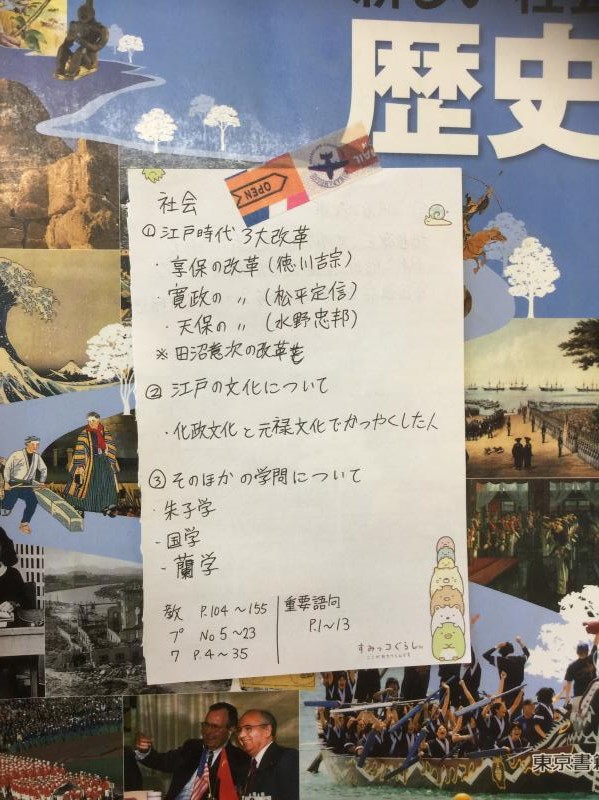 新しい社会
歴史
OPEN
社会
① 江戸時代 3大改革
・享保の改革(徳川吉宗)
・寛政の 〃 (松平定信)
・天保の 〃 (水野忠邦)
※ 田沼意次の改革も
② 江戸の文化について
・化政文化と元禄文化でかつやくした人
③ そのほかの学問について
・朱子学
・国学
・蘭学
教 P.104〜155
プ No 5〜23
ワ P.4〜35
重要語句
P.1〜13
すみっコぐらし
ここがおちつくんです
東京書籍